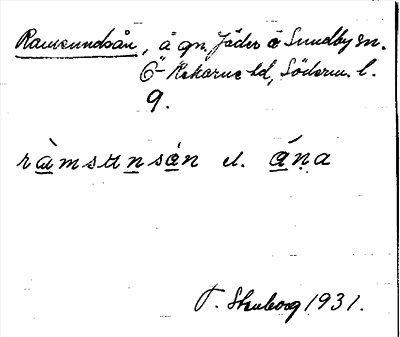 Ramsundsån, å gm. Jäder o Sundby sn.
Ö- Rekarne hd, Söderm. l.
9.
ràmsunsán el. ána
T. Stenborg 1931.